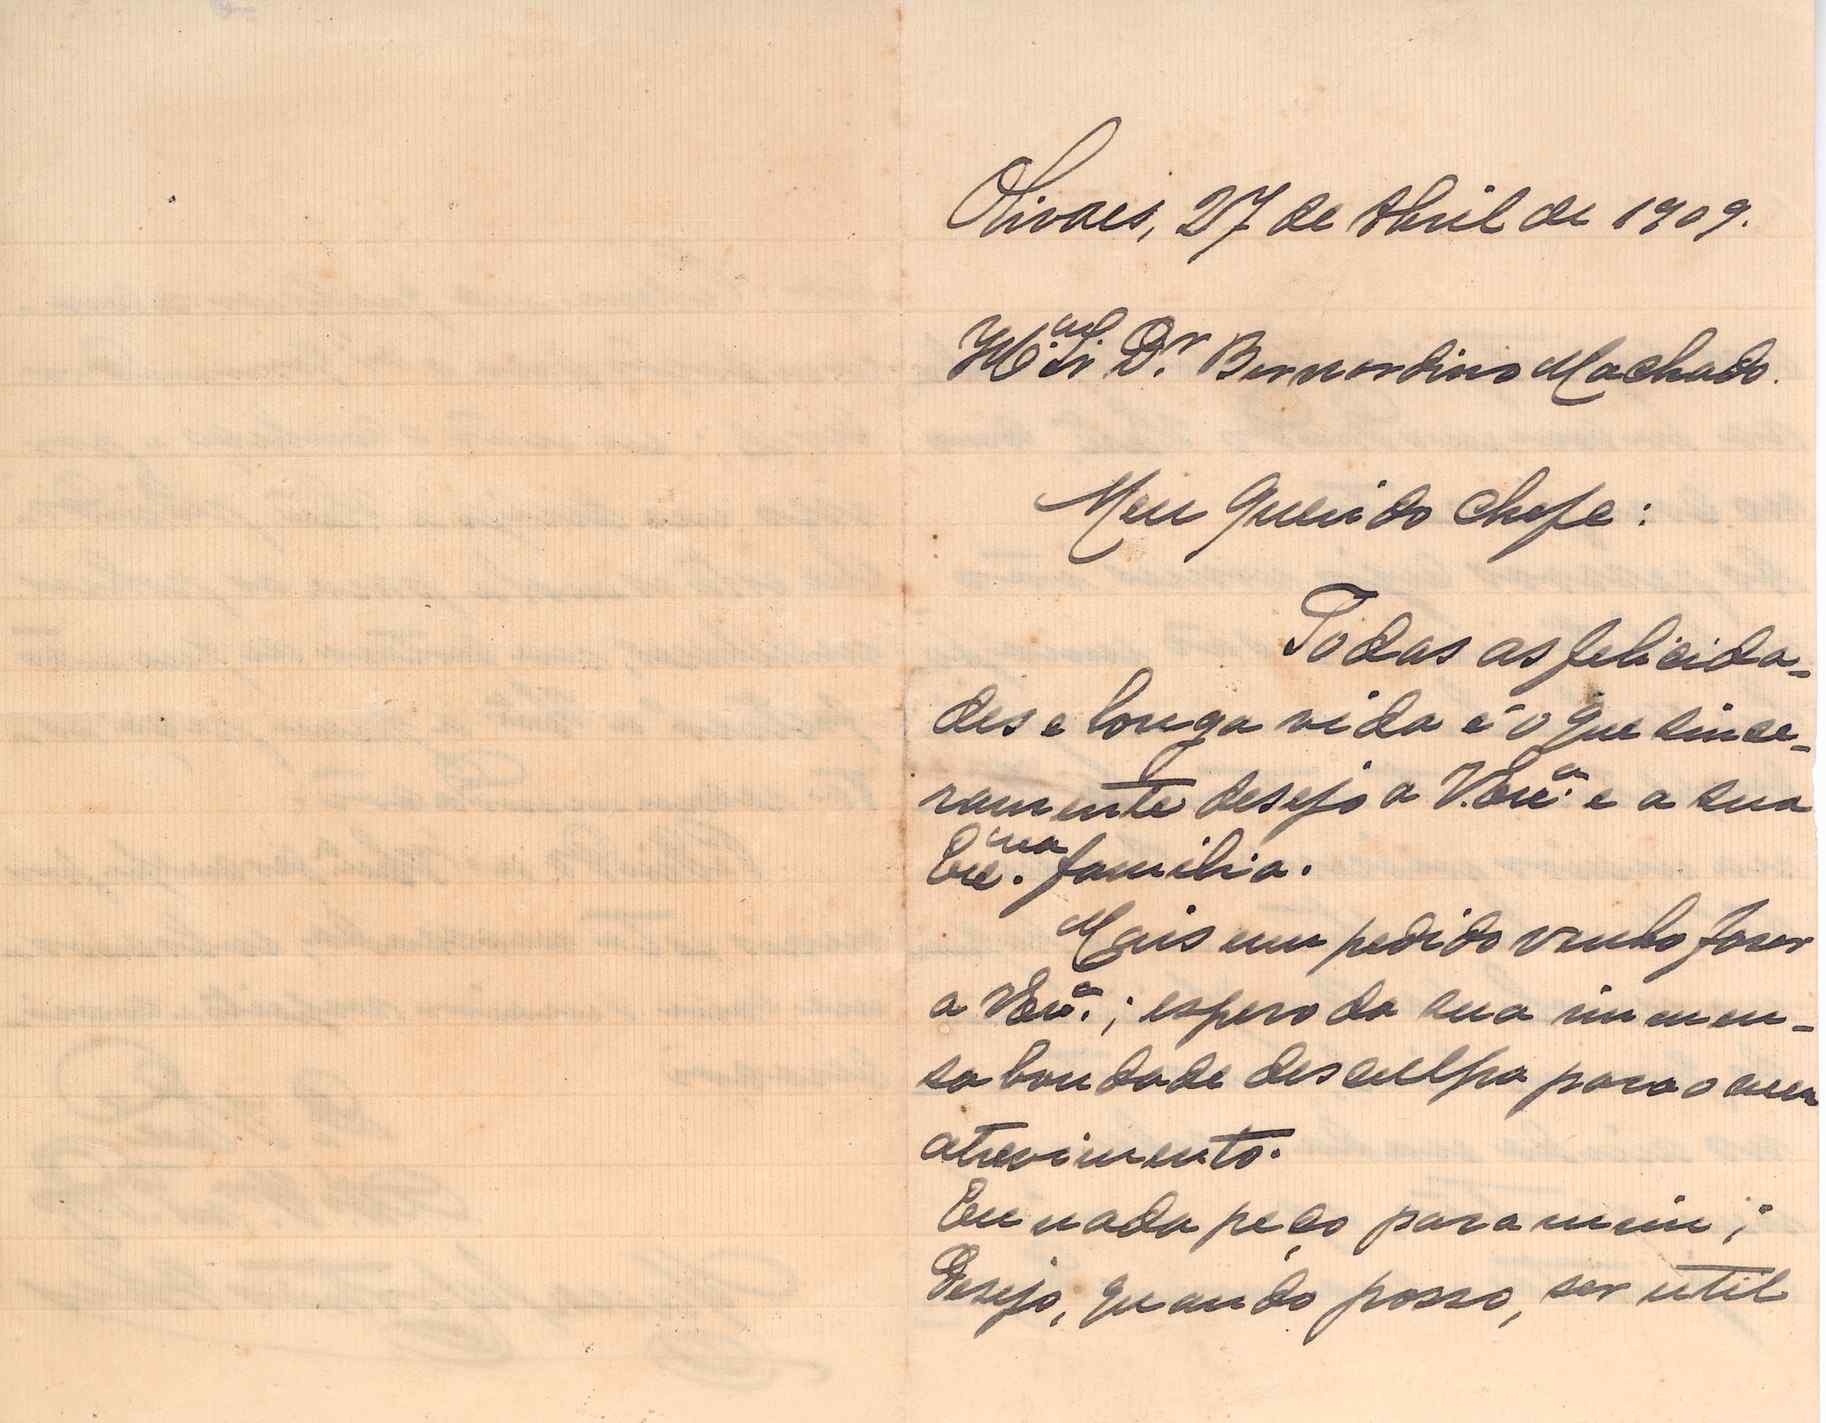 Olivaes, 27 de Abril de 1909.
Sr Dr. Bernardino Machado.
Meu querido chefe:
Todas as felicida-
des e longa vida é o que since-
ramente desejo a V. Exª. e a sua
Exma. familia.
Mais um pedido venho fazer
a V. Exª.; espero da sua immen-
sa bondade desculpa para o meu
atrevimento.
Eu nada peço para mim;
Desejo, quando posso, ser util